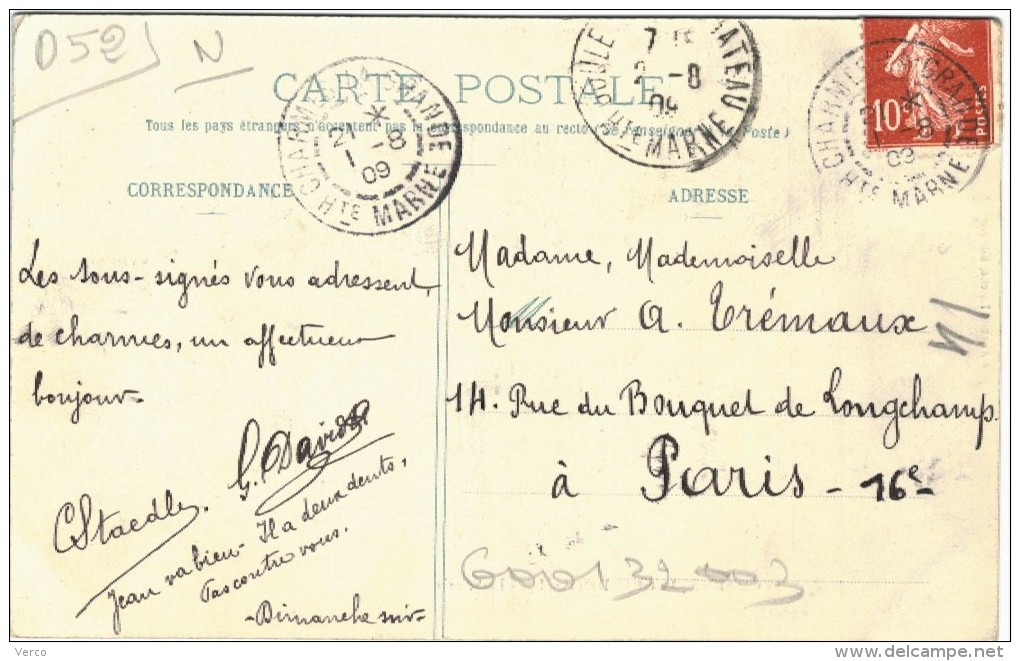 D52 N
CARTE POSTALE
Tous les pays étrangers n'acceptent pas la correspondance au recto (Se renseigner à la Poste)
CORRESPONDANCE
ADRESSE
CHARMES LA GRANDE
21 *
1 -8
09
HTE MARNE
7
-8
09
HTE MARNE
10
POSTES
CHARMES LA GRANDE
HTE MARNE
Les sous-signés vous adressent,
de charmes, un affectueux
bonjour-
G. David
CStaedle.
Jean va bien - Il a deux dents,
Dimanche soir-
Madame, Mademoiselle
Monsieur A. Trémaux
14. Rue du Bouquet de Longchamp.
à Paris - 16e-
N1
600132003
Verco
www.delcampe.net